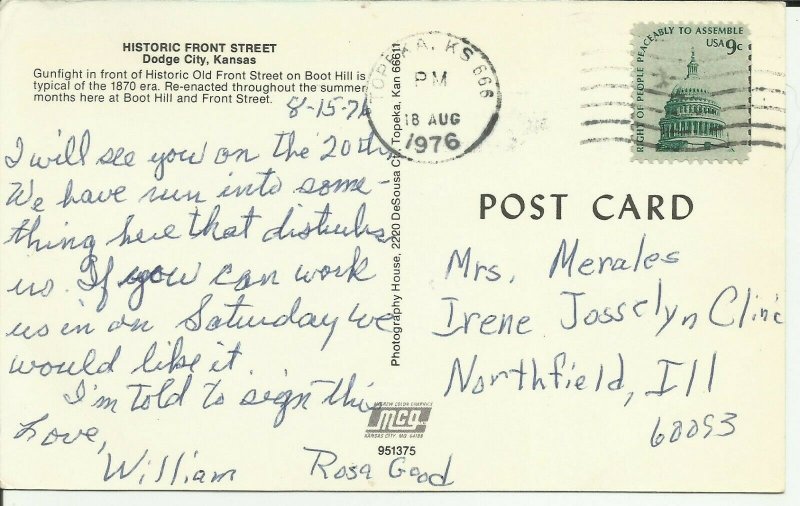 HISTORIC FRONT STREET
Dodge City, Kansas
Gunfight in front of Historic Old Front Street on Boot Hill is
typical of the 1870 era. Re-enacted throughout the summer
months here at Boot Hill and Front Street.
8-15-76
I will see you on the 20th.
We have run into some-
thing here that disturbs
us. If you can work
us in on Saturday we
would like it.
I'm told to sign this
Love,
William Rosa Good
Photography House, 2220 DeSousa Ct. Topeka, Kan 66611
McGREW COLOR GRAPHICS
mcg
KANSAS CITY, MO 64108
951375
TOPEKA, KS 666
PM
18 AUG
1976
RIGHT OF PEOPLE PEACEABLY TO ASSEMBLE
USA 9c
POST CARD
Mrs. Merales
Irene Josselyn Clinic
Northfield, Ill
60093